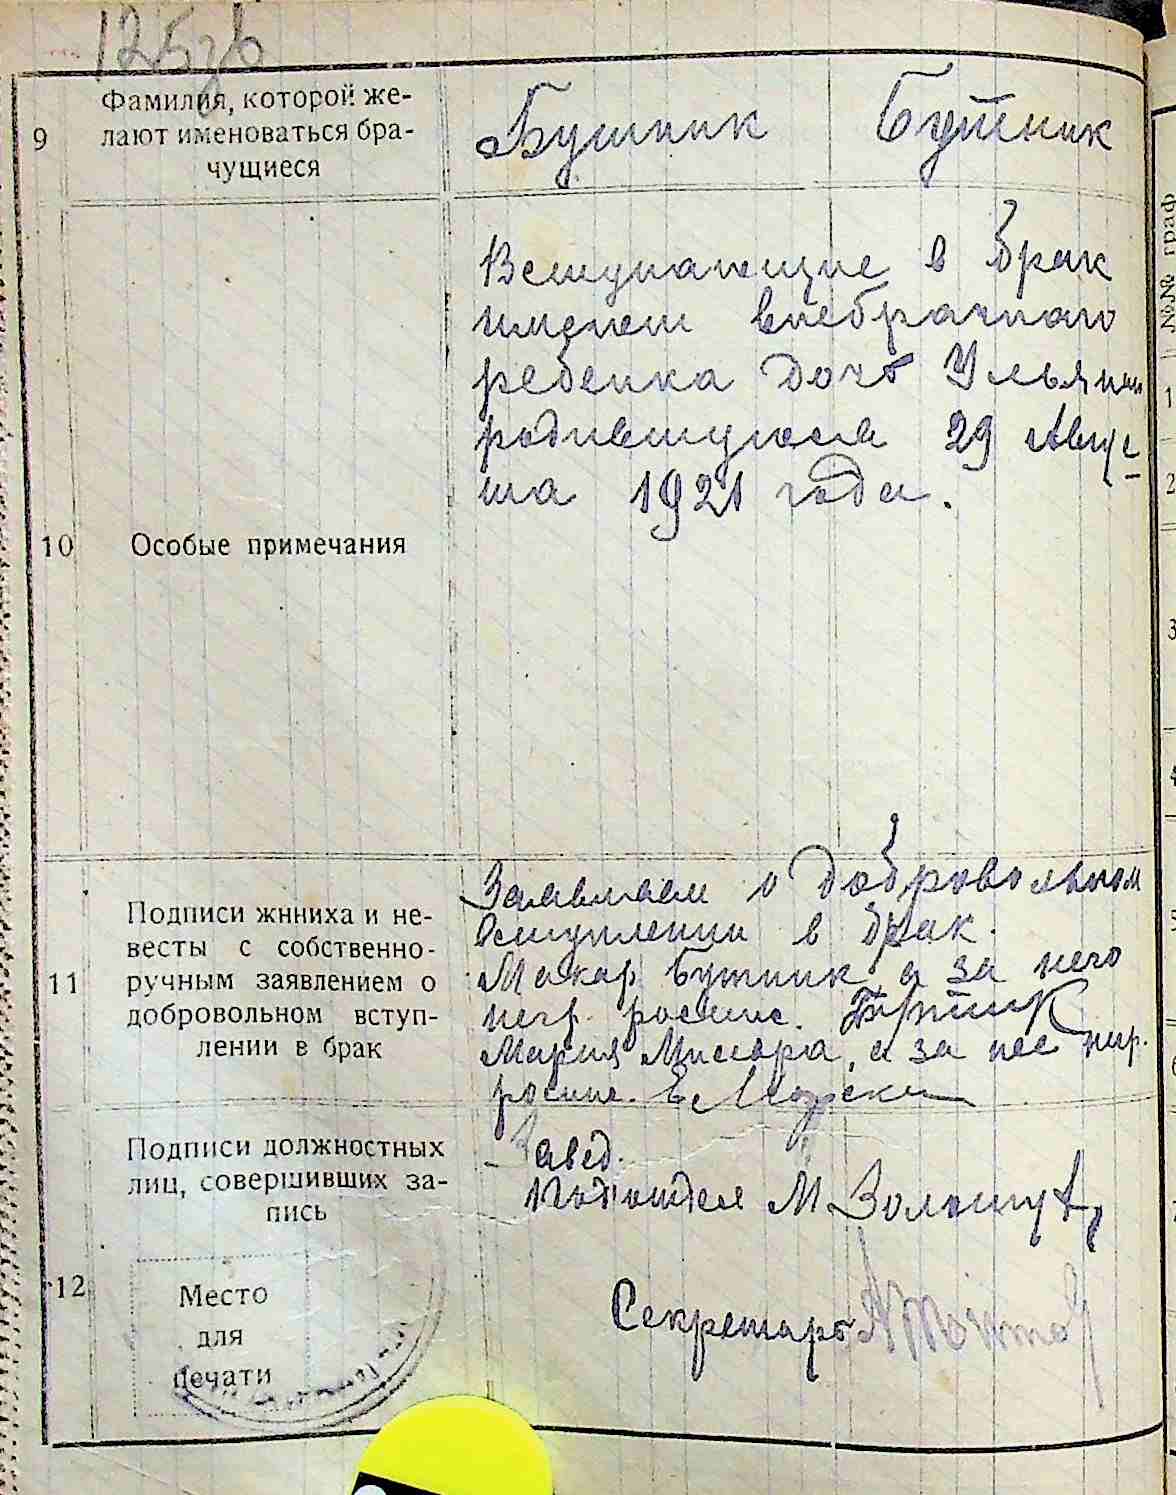 125 зв
9
Фамилия, которой же-
лают именоваться бра-
чущиеся
Бутник Бутник
10
Особые примечания
Вступающие в брак
имеют внебрачного
ребенка дочь Ульяну
родившуюся 29 Авгус-
та 1921 года.
11
Подписи жниха и не-
весты с собственно-
ручным заявлением о
добровольном вступ-
лении в брак
Заявляем о добровольном
вступлении в брак.
Макар Бутник а за него
негр. роспис. Бутник
Мария Миссюра, а за нее нгр.
роспис.
12
Подписи должностных
лиц, совершивших за-
пись
Завед.
Подотдел М
Секретарь
Место
для
печати
№№ граф
1
2
3